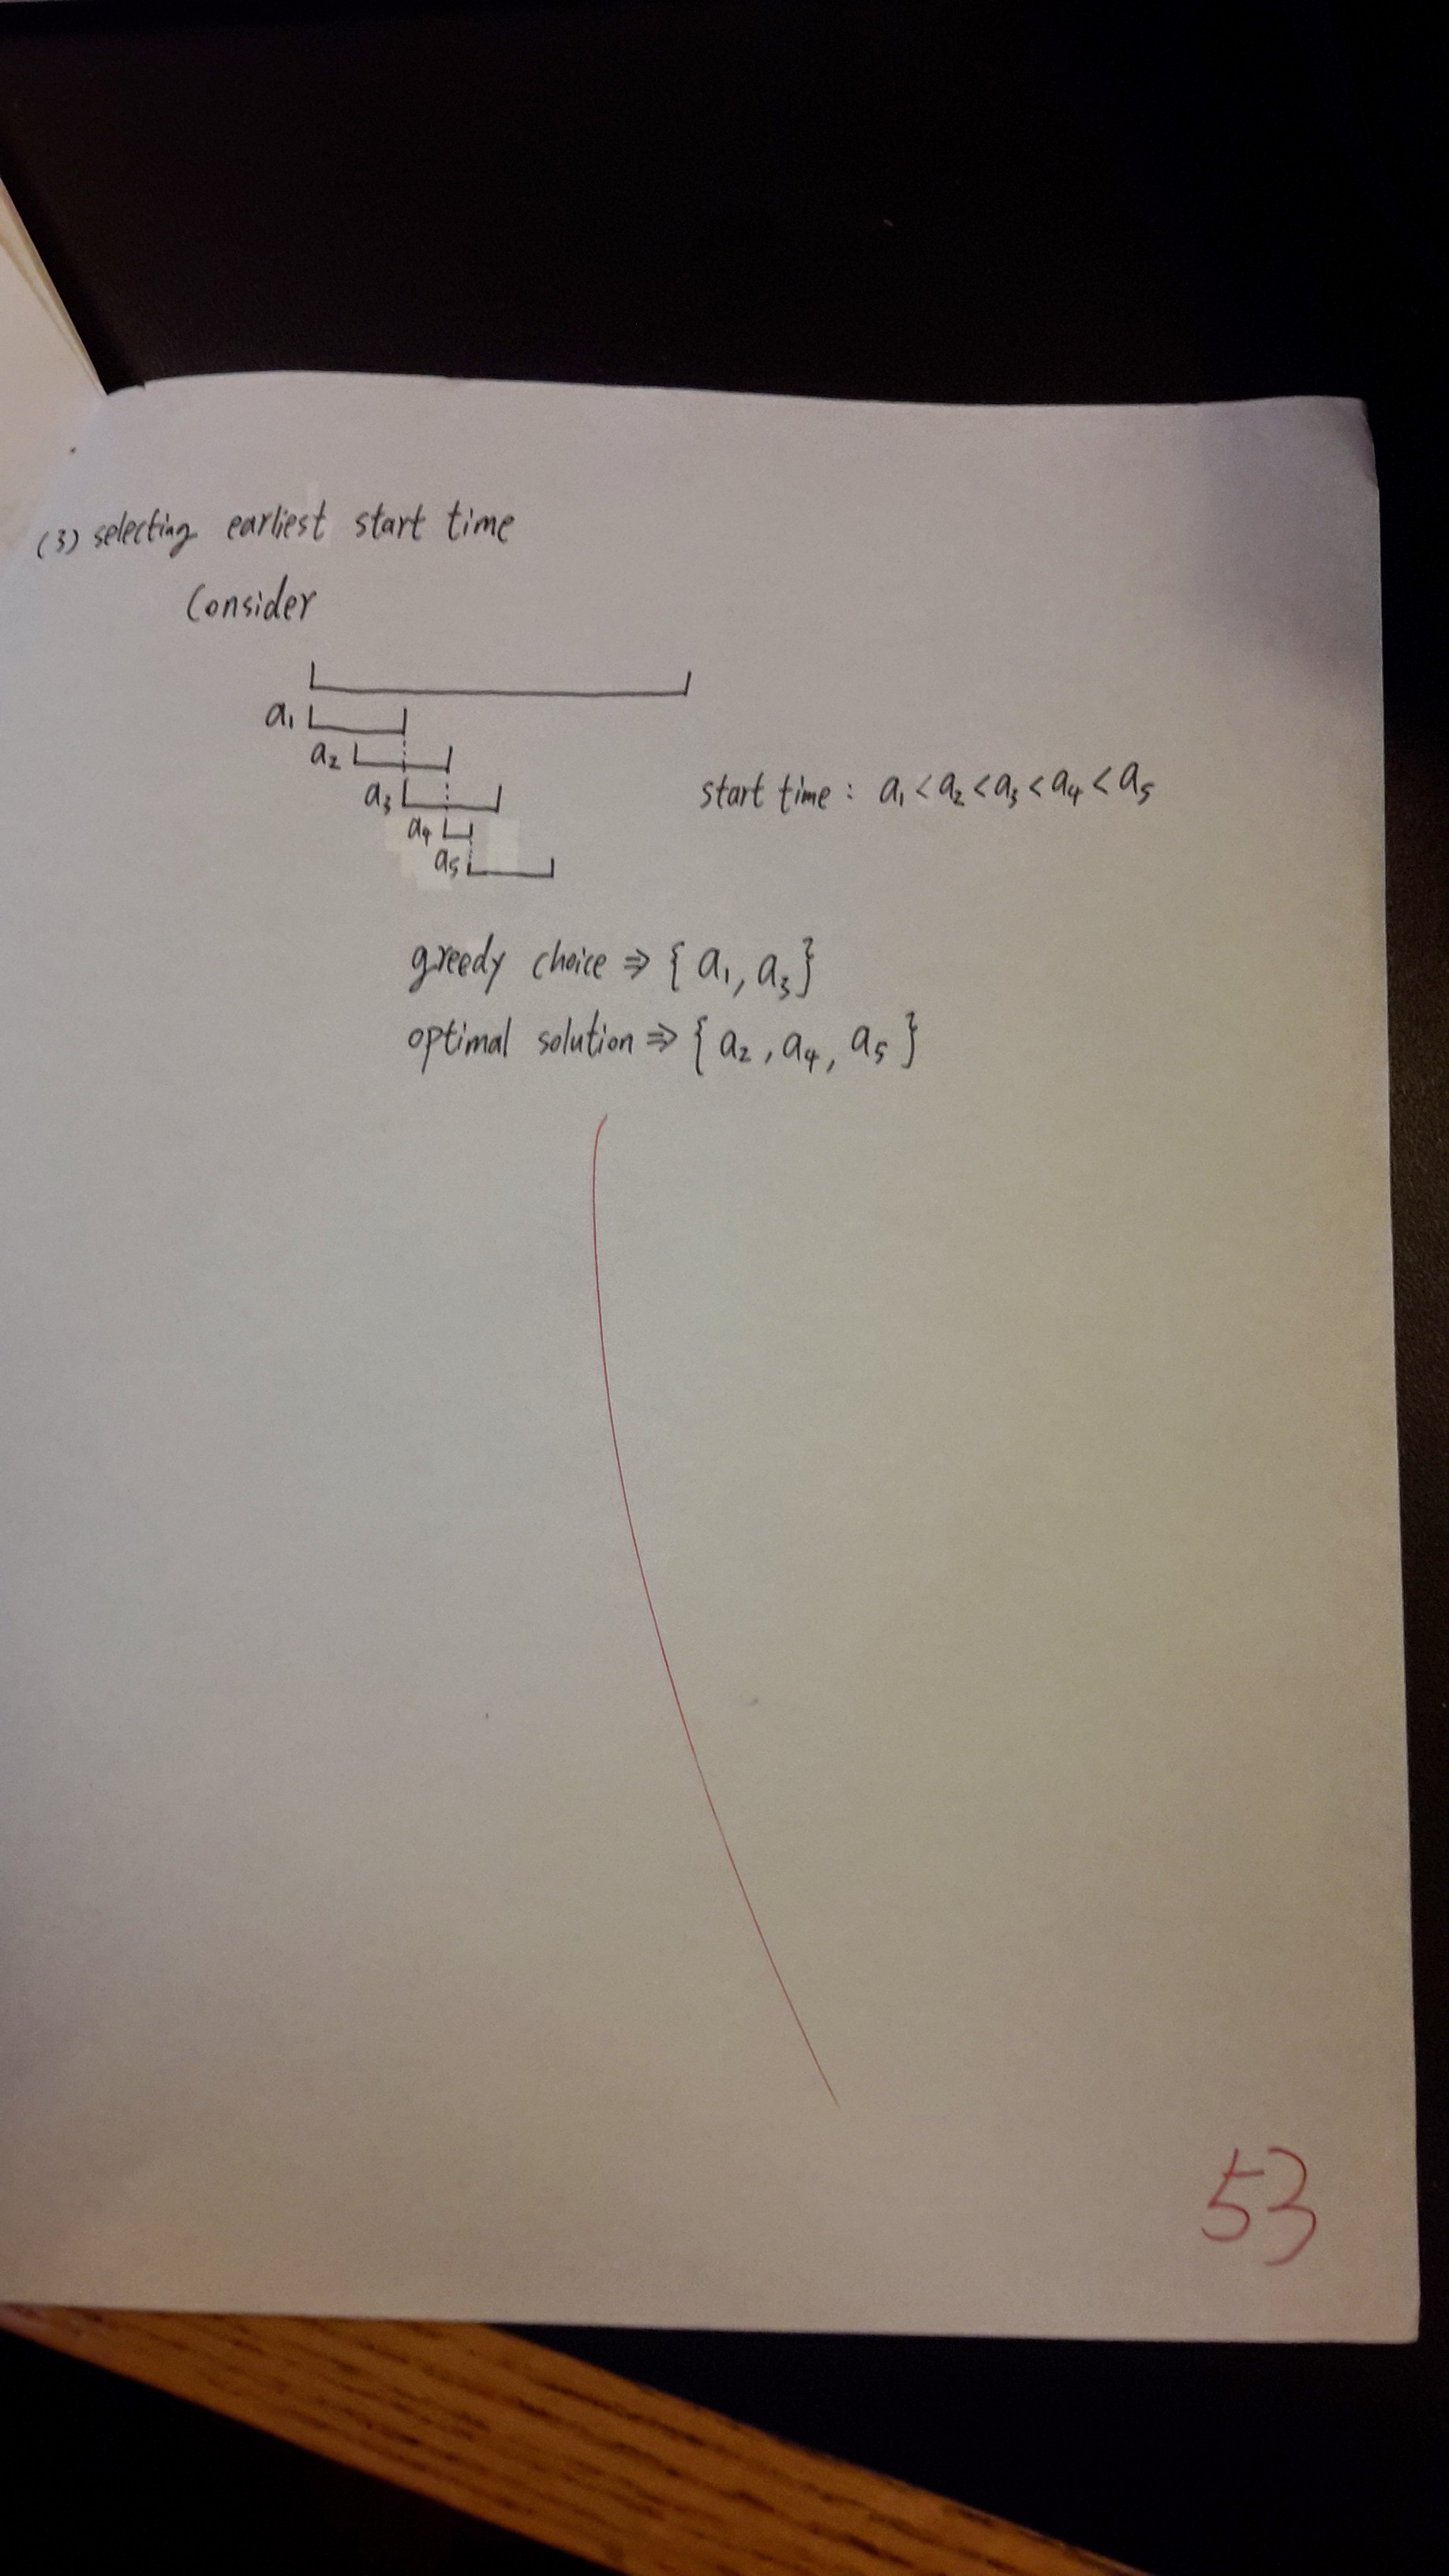 (3) selecting earliest start time
Consider
a₁
a₂
a₃
start time : a₁ < a₂ < a₃ < a₄ < a₅
a₄
a₅
greedy choice ⇒ { a₁, a₃ }
optimal solution ⇒ { a₂, a₄, a₅ }
53